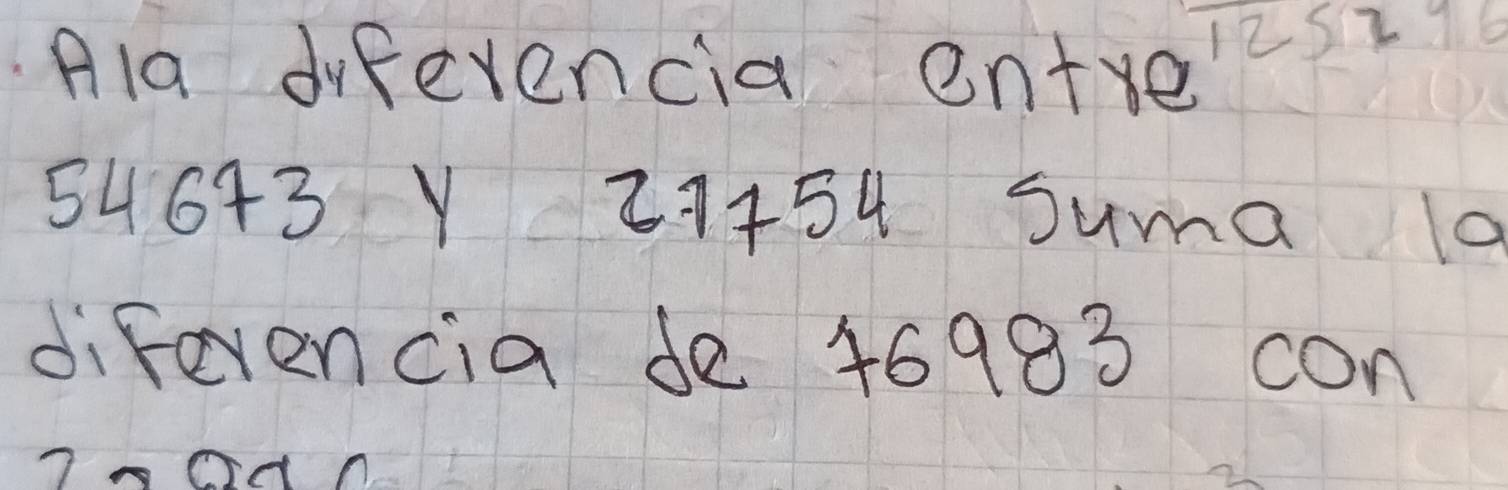 A la diferencia entre
54673 y 21754 suma la
diferencia de 76983 con